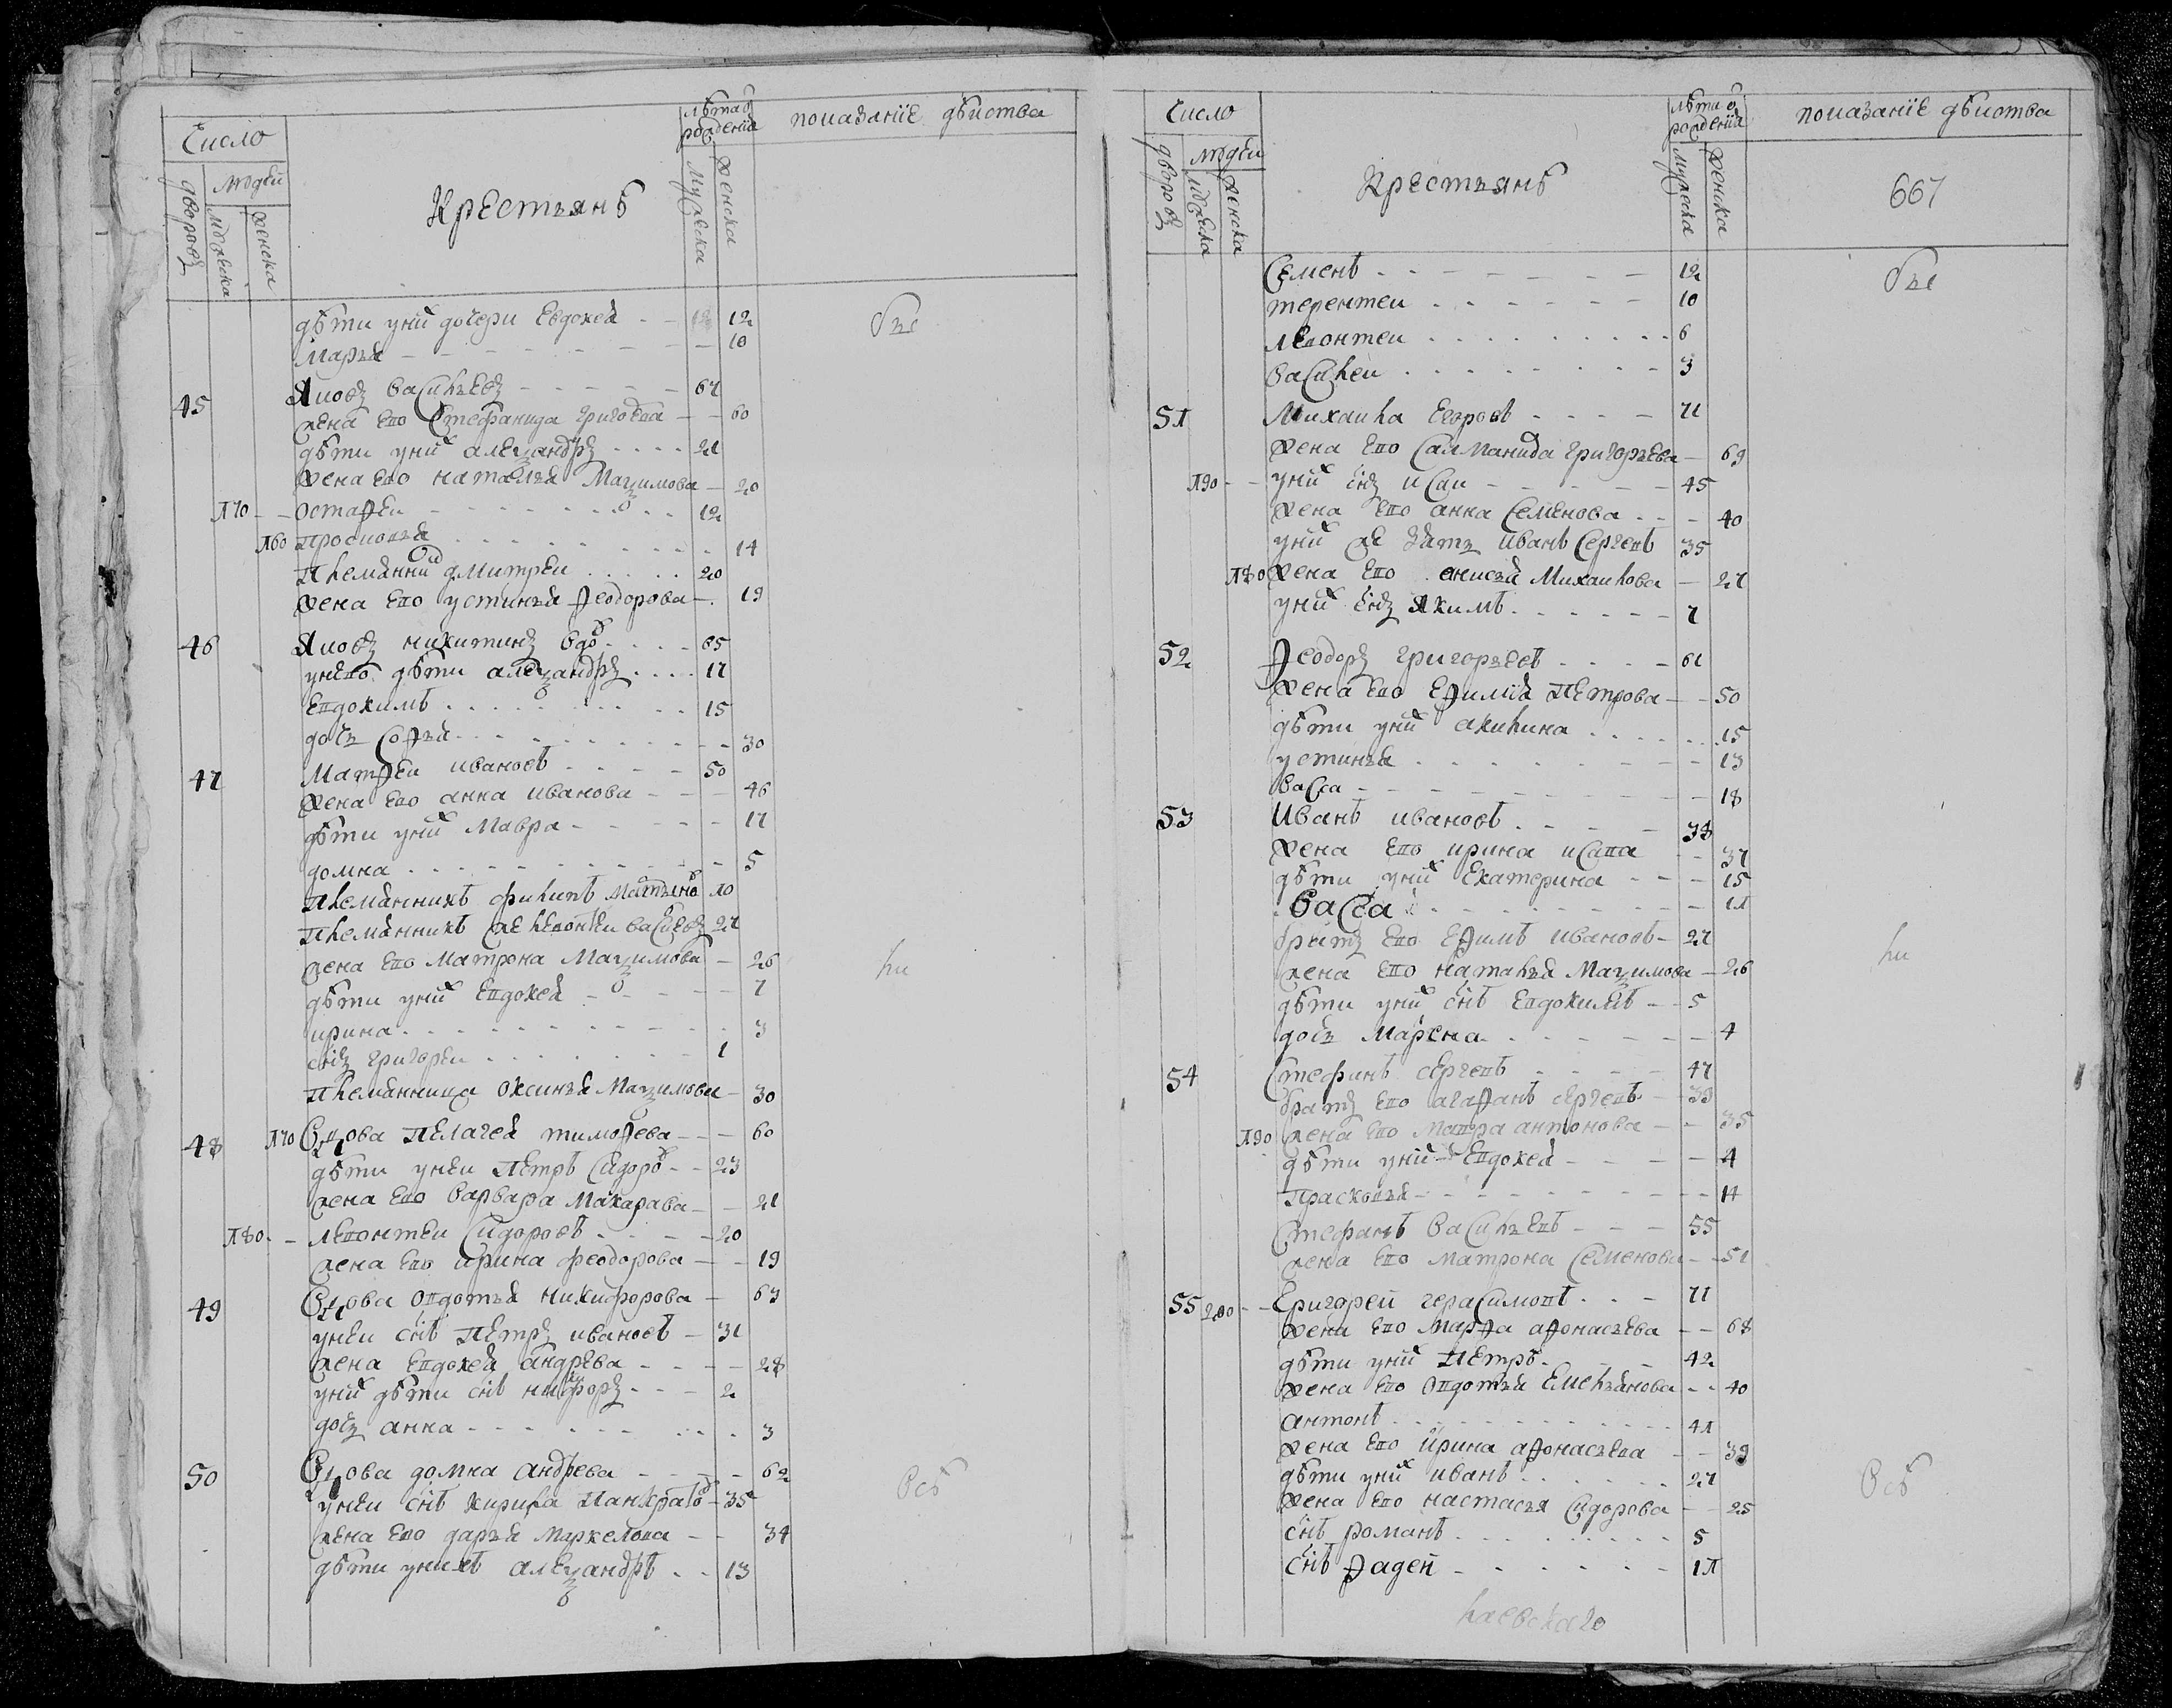 Число
людей
дворовъ
мужеска
женска
Крестьянъ
лѣта от рождения
мужеска
женска
показание действа
дѣти у них дочери Евдокея 12
Марья 10
45 Яков Васильев 67
жена ево Стефанида Григоева 60
дѣти у них Александръ 21
жена ево Наталья Максимова 20
170 Остафеи 12
160 Просковья 14
Племянник Дмитреи 20
жена ево Устинья Феодорова 19
46 Яков Никитинъ вдов 65
у нево дѣти Александръ 17
Евдокимъ 15
дочь Софья 30
47 Матфеи Ивановъ 50
жена ево Анна Иванова 46
дѣти у них Мавра 17
домна 5
Племянникъ Филипъ 10
Племянникъ же Левонтеи Васильев 27
жена ево Матрона Максимова 26
дѣти у них Евдокея 7
ирина 3
сынъ Григореи 1
Племянница Оксинья Максимова 30
48 170 Вдова Пелагея Тимофева 60
дѣти у неи Петръ Сидоров 23
жена ево Варвара Макарава 21
180 Левонтеи Сидоровъ 20
жена ево Ирина Феодорова 19
49 Вдова Овдотья Никифорова 63
у неи сынъ Петръ Ивановъ 31
жена Евдокея Андрева 28
у них дѣти сынъ Никифоръ 2
дочь Анна 3
50 Вдова Домна Андрева 62
у неи сынъ Кирила Панкратов 35
жена ево Дарья Маркелова 34
дѣти у нихъ Александръ 13
ли
всѣ
Число
людеи
дворовъ
мужеска
женска
Крестьянъ
лѣта от рождения
мужеска
женска
показание действа
667
Семенъ 12
терентеи 10
левонтеи 6
василеи 3
51 Михаила Егоровъ 71
жена ево Салманида Григорьева 69
190 у них сынъ Исаи 45
жена ево Анна Семенова 40
у них же зять Иванъ Сергеевъ 35
180 жена ево Анисья Михаилова 27
у них сынъ Якимъ 7
52 Феодоръ Григорьевъ 61
жена ево Ефимия Петрова 50
дѣти у них Акилина 15
устинья 13
васса 18
53 Иванъ Ивановъ 38
жена ево Ирина Исаева 37
дѣти у них Екатерина 15
Васса 11
братъ ево Ефимъ Ивановъ 27
жена ево Наталья Максимова 26
дѣти у них сынъ Евдокимъ 5
дочь Марѣена 4
54 Стефанъ Сергеевъ 47
братъ ево Агафанъ Сергеевъ 39
190 жена ево Мавра Антонова 35
дѣти у них Евдокея 4
Прасковья 14
Стефанъ Васильевъ 55
жена ево Матрона Семенова 51
55 200 Григорей Герасимовъ 71
жена ево Марфа Афонасьева 68
дѣти у них Петръ 42
жена ево Овдотья Емельянова 40
антонъ 41
жена ево Ирина Афонасьева 39
дѣти у них Иванъ 27
жена ево Настасья Сидорова 25
сынъ романъ 5
сынъ Фадей 11
ли
всѣ